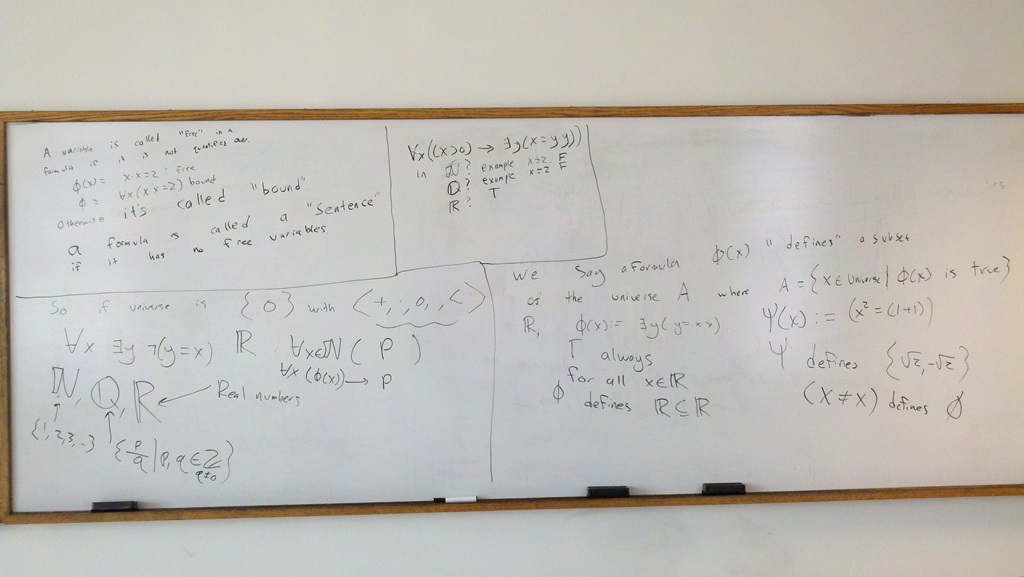 A variable is called "free" in a
formula if it is not quantified over.
ϕ(x) = x·x=2 : free
ϕ = ∀x(x·x=2) bound
Otherwise it's called "bound"
a formula is called a "sentence"
if it has no free variables
∀x((x>0) → ∃y(x=y·y))
in ℕ? example x=2 F
ℚ? example x=2 F
ℝ? T
So if universe is {0} with <+,·,0,<>
∀x ∃y ¬(y=x) ℝ ∀x∈ℕ( P )
∀x(ϕ(x)) → P
ℕ, ℚ, ℝ ← Real numbers
{1,2,3,…}
{p/q | p,q ∈ ℤ
q≠0}
We say a formula ϕ(x) "defines" a subset
of the universe A where A = {x ∈ Universe | ϕ(x) is true}
ℝ, ϕ(x):= ∃y(y=x·x)
T always
for all x∈ℝ
ϕ defines ℝ⊆ℝ
Ψ(x) := (x²=(1+1))
Ψ defines {√2, -√2}
(x≠x) defines ∅